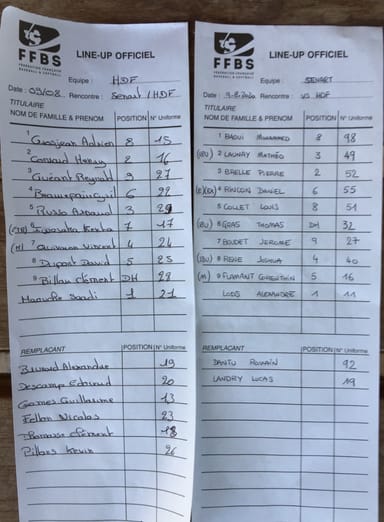 FFBS
FÉDÉRATION FRANÇAISE
BASEBALL & SOFTBALL
LINE-UP OFFICIEL
Equipe : HDF
Date : 09/08 Rencontre : Senart / HDF
TITULAIRE
NOM DE FAMILLE & PRENOM POSITION N° Uniforme
1 Grosjean Adrien 8 15
2 Henry 2 16
3 Guérant 9 27
4 Cyril 6 22
5 Russo Arnaud 3
6 7 17
7 Vincent 4 24
8 Dupont David 5 25
9 Billon Clément DH
Saadi 1 21
REMPLAÇANT POSITION N° Uniforme
Alexandre 19
Descamps Edouard 20
Gomes Guillaume 13
Fellon Nicolas 23
Clément 18
Kevin 26
FFBS
FÉDÉRATION FRANÇAISE
BASEBALL & SOFTBALL
LINE-UP OFFICIEL
Equipe : SENART
Date : Rencontre : VS HDF
TITULAIRE
NOM DE FAMILLE & PRENOM POSITION N° Uniforme
1 BAOUI MOHAMMED 8 98
2 LAUNAY MATHÉO 3 49
3 BRELLE PIERRE 2 52
4 RINCON DANIEL 6 55
5 COLLET LOUIS 8 51
(EU) 6 GRAS THOMAS DH 32
7 BOUDET JEROME 9 27
8 RENE JOSHUA 4 40
(M) 9 FLAMANT CORENTHIN 5 16
LODS ALEXANDRE 1 11
REMPLAÇANT POSITION N° Uniforme
DANTU ROMAIN 92
LANDRY LUCAS 19